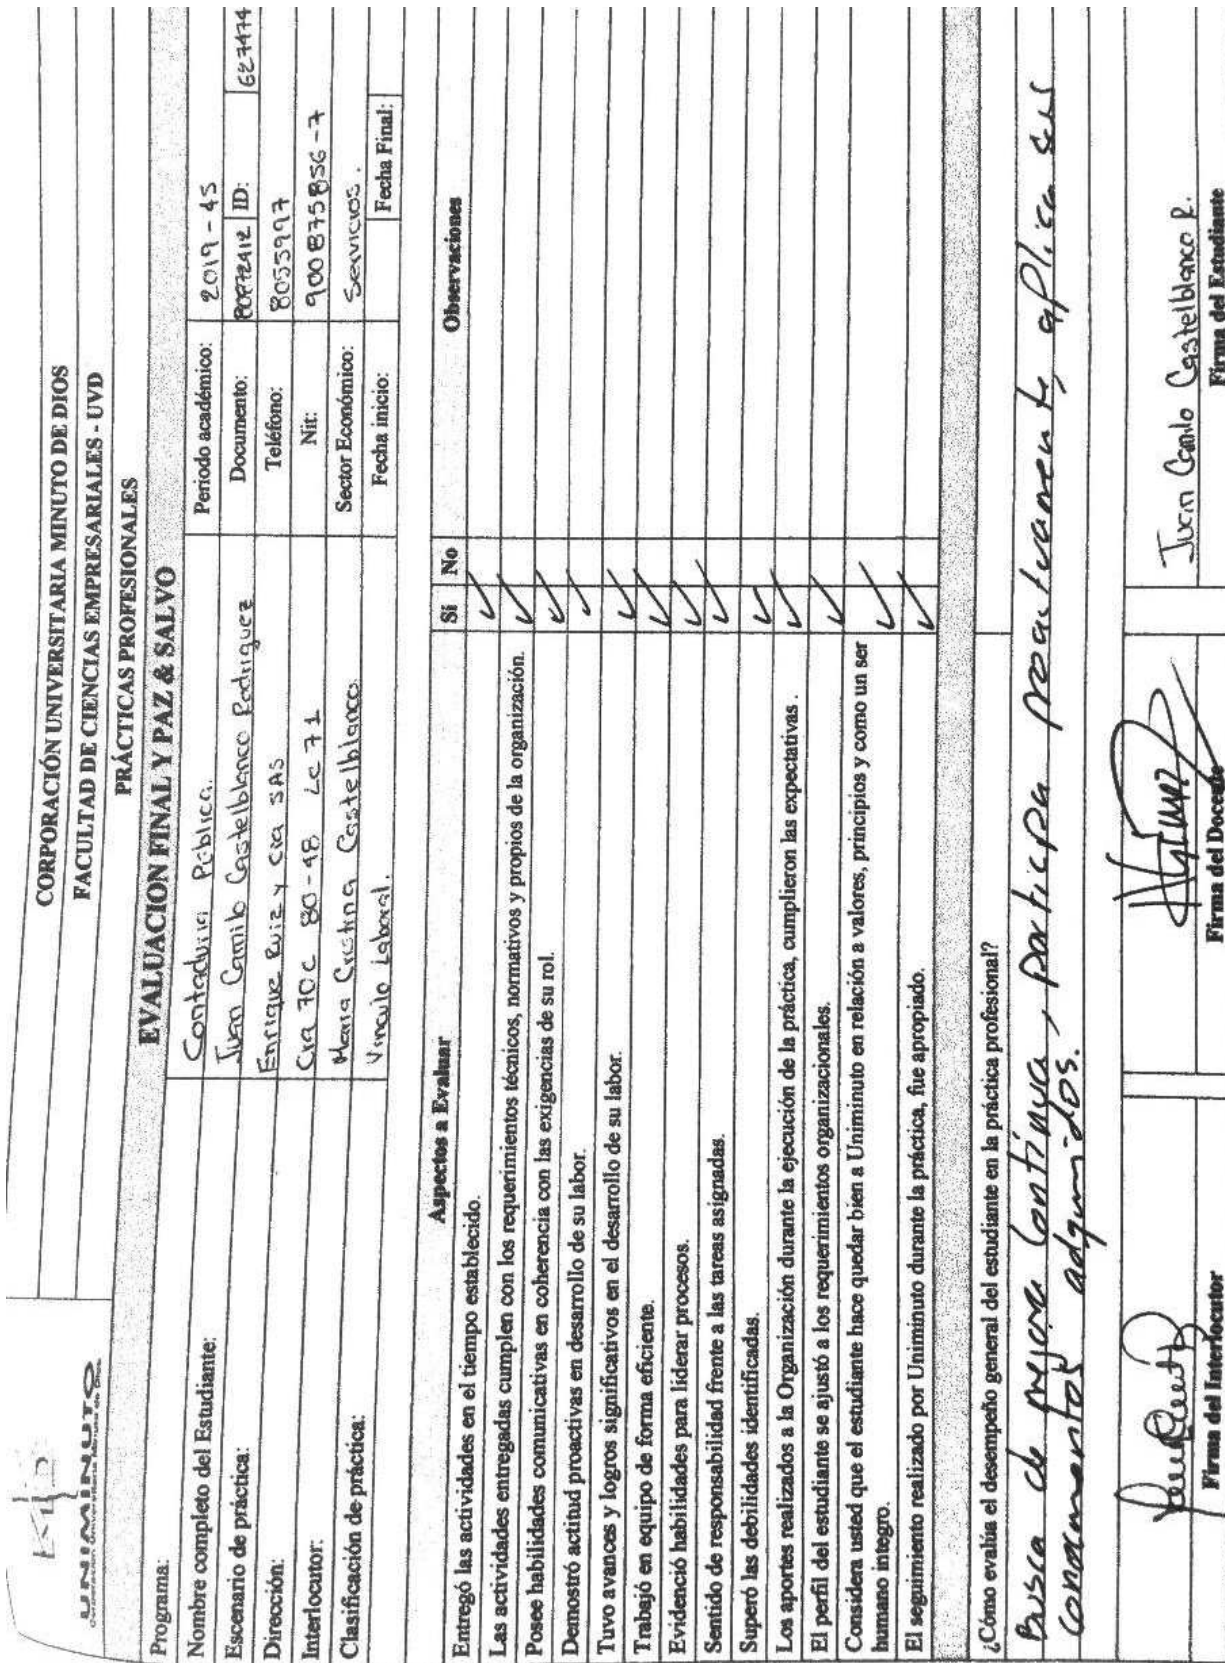 UNIMINUTO
Corporación Universitaria Minuto de Dios
CORPORACIÓN UNIVERSITARIA MINUTO DE DIOS
FACULTAD DE CIENCIAS EMPRESARIALES - UVD
PRÁCTICAS PROFESIONALES
EVALUACION FINAL Y PAZ & SALVO
Programa: Contaduria Pública. Periodo académico: 2019 - 45
Nombre completo del Estudiante: Juan Camilo Castelblanco Rodriguez Documento: 80772412 ID: 627474
Escenario de práctica: Enrique Ruiz y Cia SAS Teléfono: 8055997
Dirección: Cra 70C 80-48 Lc 71 Nit: 900875856-7
Interlocutor: Maria Cristina Castelblanco Sector Económico: Servicios.
Clasificación de práctica: Vinculo Laboral. Fecha inicio: Fecha Final:
Aspectos a Evaluar Sí No Observaciones
Entregó las actividades en el tiempo establecido. ✓
Las actividades entregadas cumplen con los requerimientos técnicos, normativos y propios de la organización. ✓
Posee habilidades comunicativas en coherencia con las exigencias de su rol. ✓
Demostró actitud proactivas en desarrollo de su labor. ✓
Tuvo avances y logros significativos en el desarrollo de su labor. ✓
Trabajó en equipo de forma eficiente. ✓
Evidenció habilidades para liderar procesos. ✓
Sentido de responsabilidad frente a las tareas asignadas. ✓
Superó las debilidades identificadas. ✓
Los aportes realizados a la Organización durante la ejecución de la práctica, cumplieron las expectativas . ✓
El perfil del estudiante se ajustó a los requerimientos organizacionales. ✓
Considera usted que el estudiante hace quedar bien a Uniminuto en relación a valores, principios y como un ser
humano integro. ✓
El seguimiento realizado por Uniminuto durante la práctica, fue apropiado. ✓
¿Cómo evalúa el desempeño general del estudiante en la práctica profesional?
Busca de mejora continua, participa proactivamente, aplica sus
conocimientos adquiridos.
Juan Camilo Castelblanco R.
Firma del Interlocutor Firma del Docente Firma del Estudiante